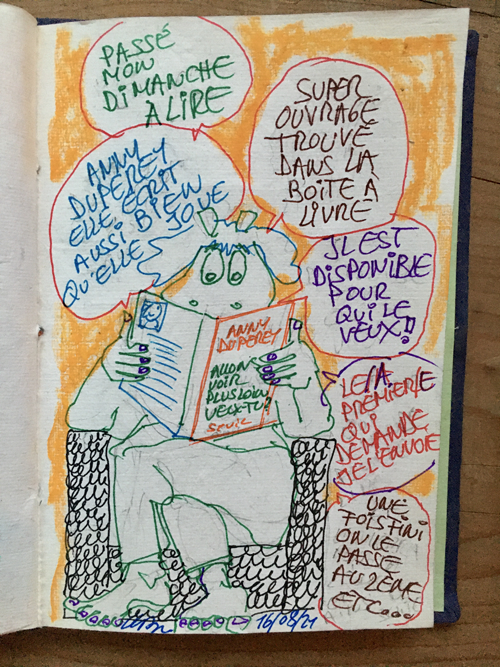 PASSÉ
MON
DIMANCHE
À LIRE
SUPER
OUVRAGE
TROUVÉ
DANS LA
BOÎTE À
LIVRE
ANNY
DUPEREY
ELLE ÉCRIT
AUSSI BIEN
QU'ELLE JOUE
IL EST
DISPONIBLE
POUR
QUI LE
VEUX!!
ANNY
DUPEREY
ALLONS
VOIR
PLUS LOIN
VEUX-TU?
SEUIL
LE/A
PREMIER/E
QUI
DEMANDE
JE L'ENVOIE
UNE
FOIS FINI
ON LE
PASSE
AU 2ÈME
ETC...
16/08/21